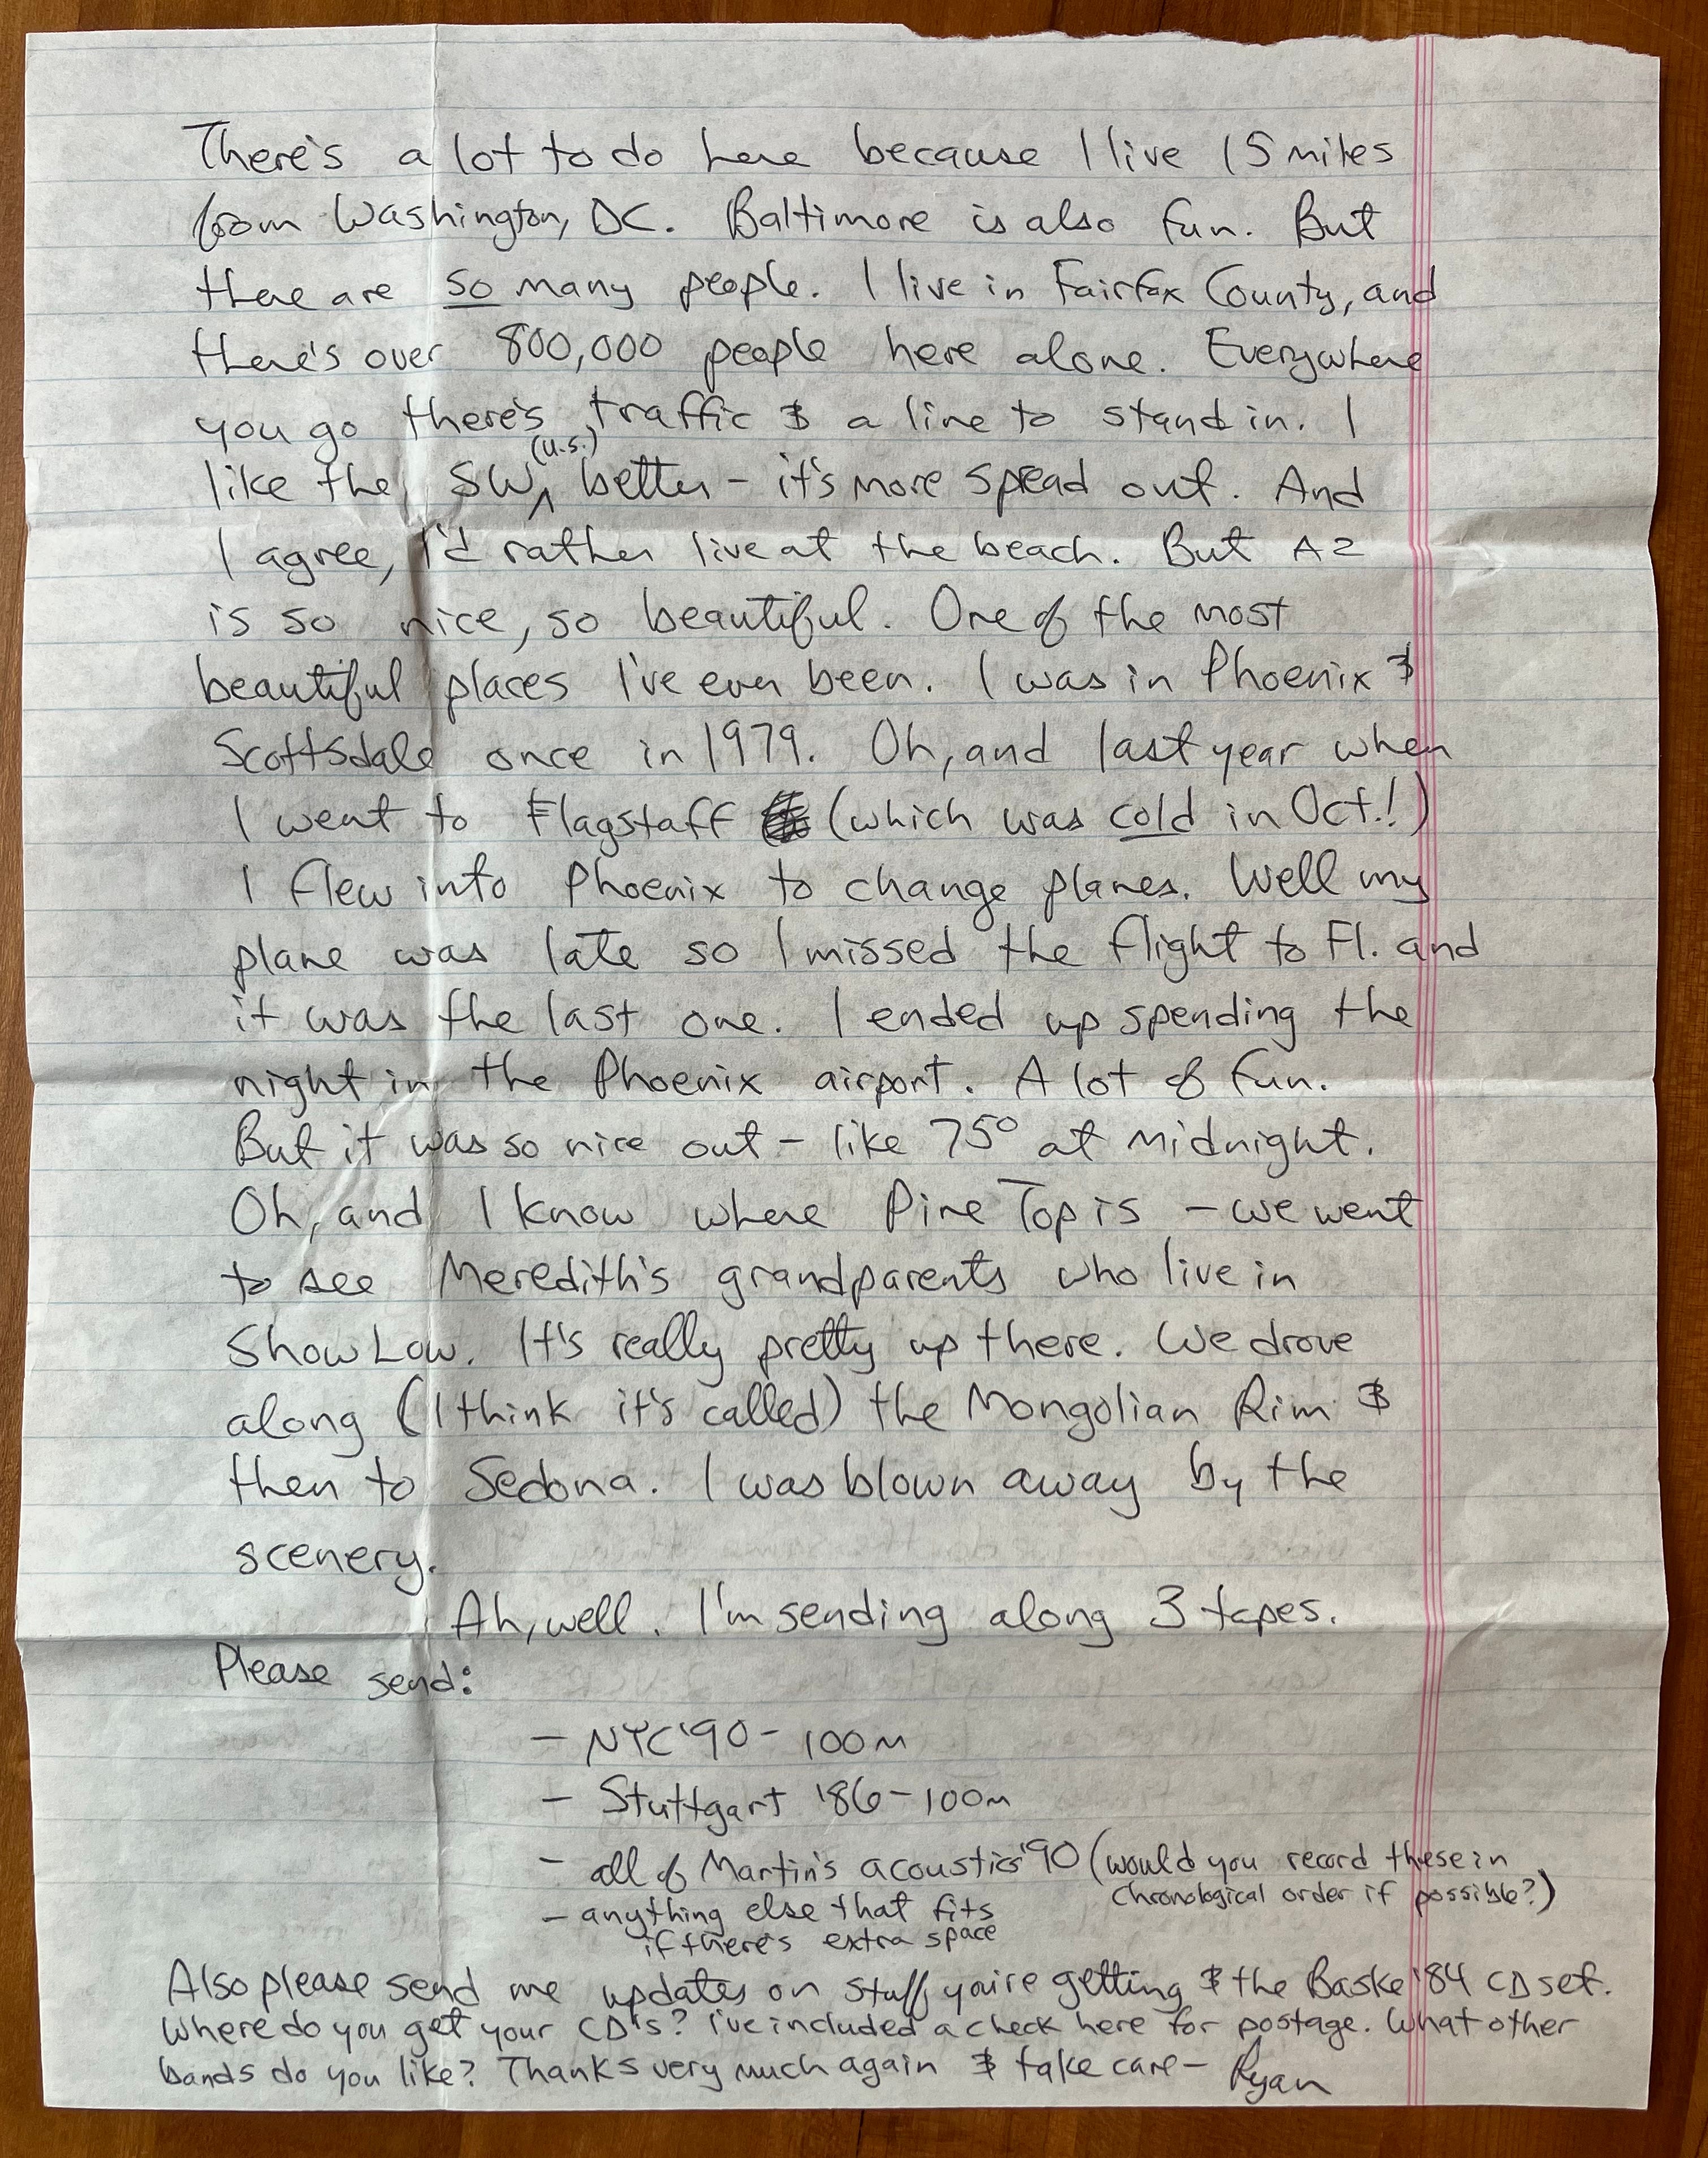 There's a lot to do here because I live 15 miles
from Washington, DC. Baltimore is also fun. But
there are so many people. I live in Fairfax County, and
there's over 800,000 people here alone. Everywhere
you go there's traffic & a line to stand in. I
like the SW (U.S.) better - it's more spread out. And
I agree, I'd rather live at the beach. But AZ
is so nice, so beautiful. One of the most
beautiful places I've ever been. I was in Phoenix &
Scottsdale once in 1979. Oh, and last year when
I went to Flagstaff (which was cold in Oct.!)
I flew into Phoenix to change planes. Well my
plane was late so I missed the flight to Fl. and
it was the last one. I ended up spending the
night in the Phoenix airport. A lot of fun.
But it was so nice out - like 75° at midnight.
Oh, and I know where Pine Top is - we went
to see Meredith's grandparents who live in
Show Low. It's really pretty up there. We drove
along (I think it's called) the Mongolian Rim &
then to Sedona. I was blown away by the
scenery.
Ah, well. I'm sending along 3 tapes.
Please send:
- NYC '90 - 100m
- Stuttgart '86 - 100m
- all of Martin's acoustics '90 (would you record these in
chronological order if possible?)
- anything else that fits
if there's extra space
Also please send me updates on stuff you're getting & the Baske '84 CD set.
Where do you get your CD's? I've included a check here for postage. What other
bands do you like? Thanks very much again & take care - Ryan